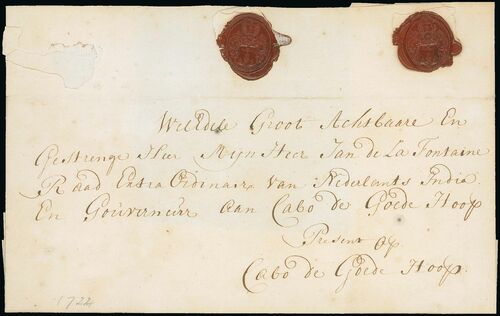 WelEdele Groot Achtbaare En
Gestrenge Heer Mijn Heer Jan de La Fontaine
Raad Extra Ordinair van Nederlants India
En Gouverneur aan Cabo de Goede Hoop
Present op
Cabo de Goede Hoop.
1724